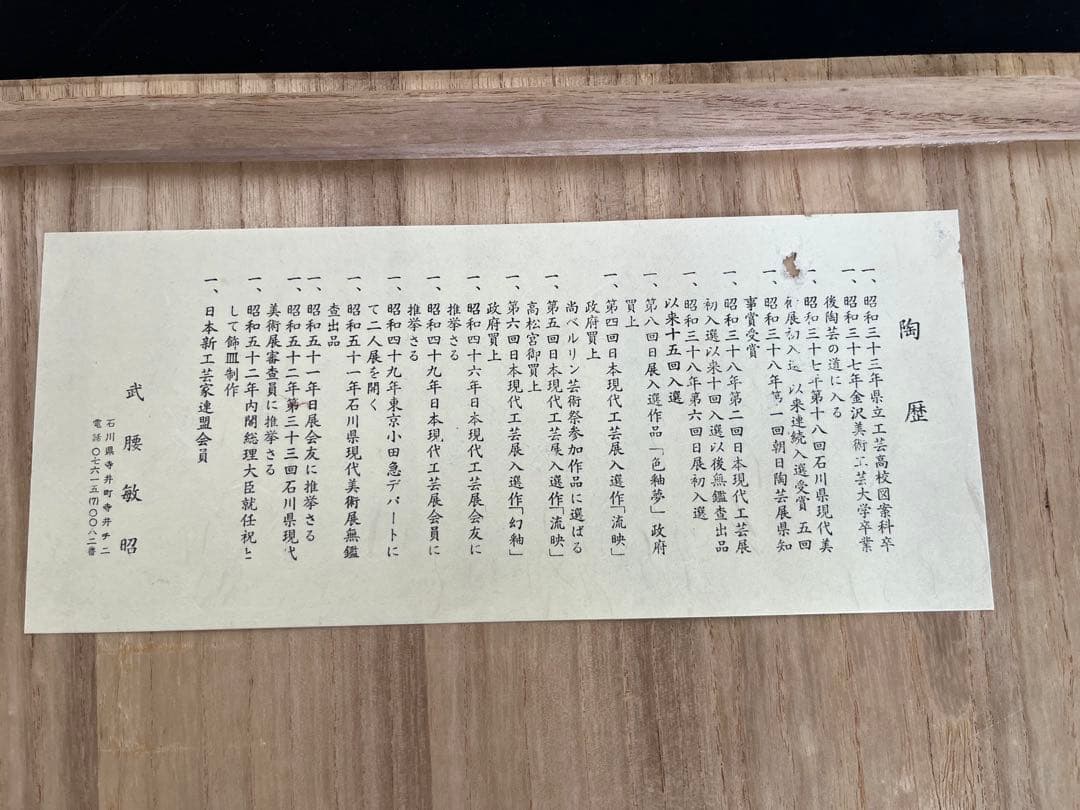 陶歴
一、昭和三十三年県立工芸高校図案科卒
一、昭和三十七年金沢美術工芸大学卒業
後陶芸の道に入る
一、昭和三十七年第十八回石川県現代美
術展初入選 以来連続入選受賞 五回
一、昭和三十八年第一回朝日陶芸展県知
事賞受賞
一、昭和三十八年第二回日本現代工芸展
初入選以来十回入選以後無鑑査出品
一、昭和三十八年第六回日展初入選
以来十五回入選
一、第八回日展入選作品「色釉夢」政府
買上
一、第四回日本現代工芸展入選作「流映」
政府買上
尚ベルリン芸術祭参加作品に選ばる
一、第五回日本現代工芸展入選作「流映」
高松宮御買上
一、第六回日本現代工芸展入選作「幻釉」
政府買上
一、昭和四十六年日本現代工芸展会友に
推挙さる
一、昭和四十九年日本現代工芸展会員に
推挙さる
一、昭和四十九年東京小田急デパートに
て二人展を開く
一、昭和五十一年石川県現代美術展無鑑
査出品
一、昭和五十一年日展会友に推挙さる
一、昭和五十二年第三十三回石川県現代
美術展審査員に推挙さる
一、昭和五十二年内閣総理大臣就任祝と
して飾皿制作
一、日本新工芸家連盟会員
武腰敏昭
石川県寺井町寺井チ二
電話〇七六一五(7)〇〇八二番